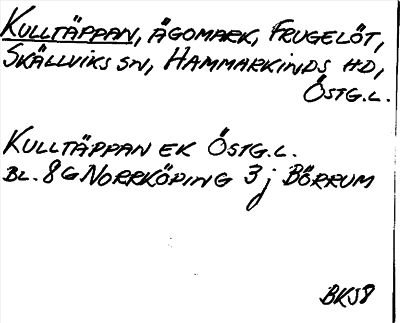 KULLTÄPPAN, ÄGOMARK, FRUGELÖT,
SKÄLLVIKS SN, HAMMARKINDS HD,
ÖSTG.L.
KULLTÄPPAN EK ÖSTG.L.
BL. 8G NORRKÖPING 3j BÖRRUM
BKS8